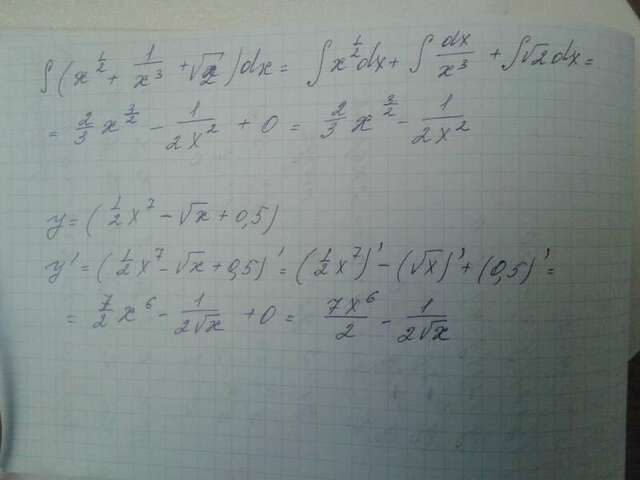 ∫(x^{1/2} + 1/x³ + √2)dx = ∫x^{1/2}dx + ∫dx/x³ + ∫√2dx =
= 2/3 x^{3/2} - 1/2x² + 0 = 2/3 x^{3/2} - 1/2x²
y = (1/2 x⁷ - √x + 0,5)
y' = (1/2 x⁷ - √x + 0,5)' = (1/2 x⁷)' - (√x)' + (0,5)' =
= 7/2 x⁶ - 1/2√x + 0 = 7x⁶/2 - 1/2√x